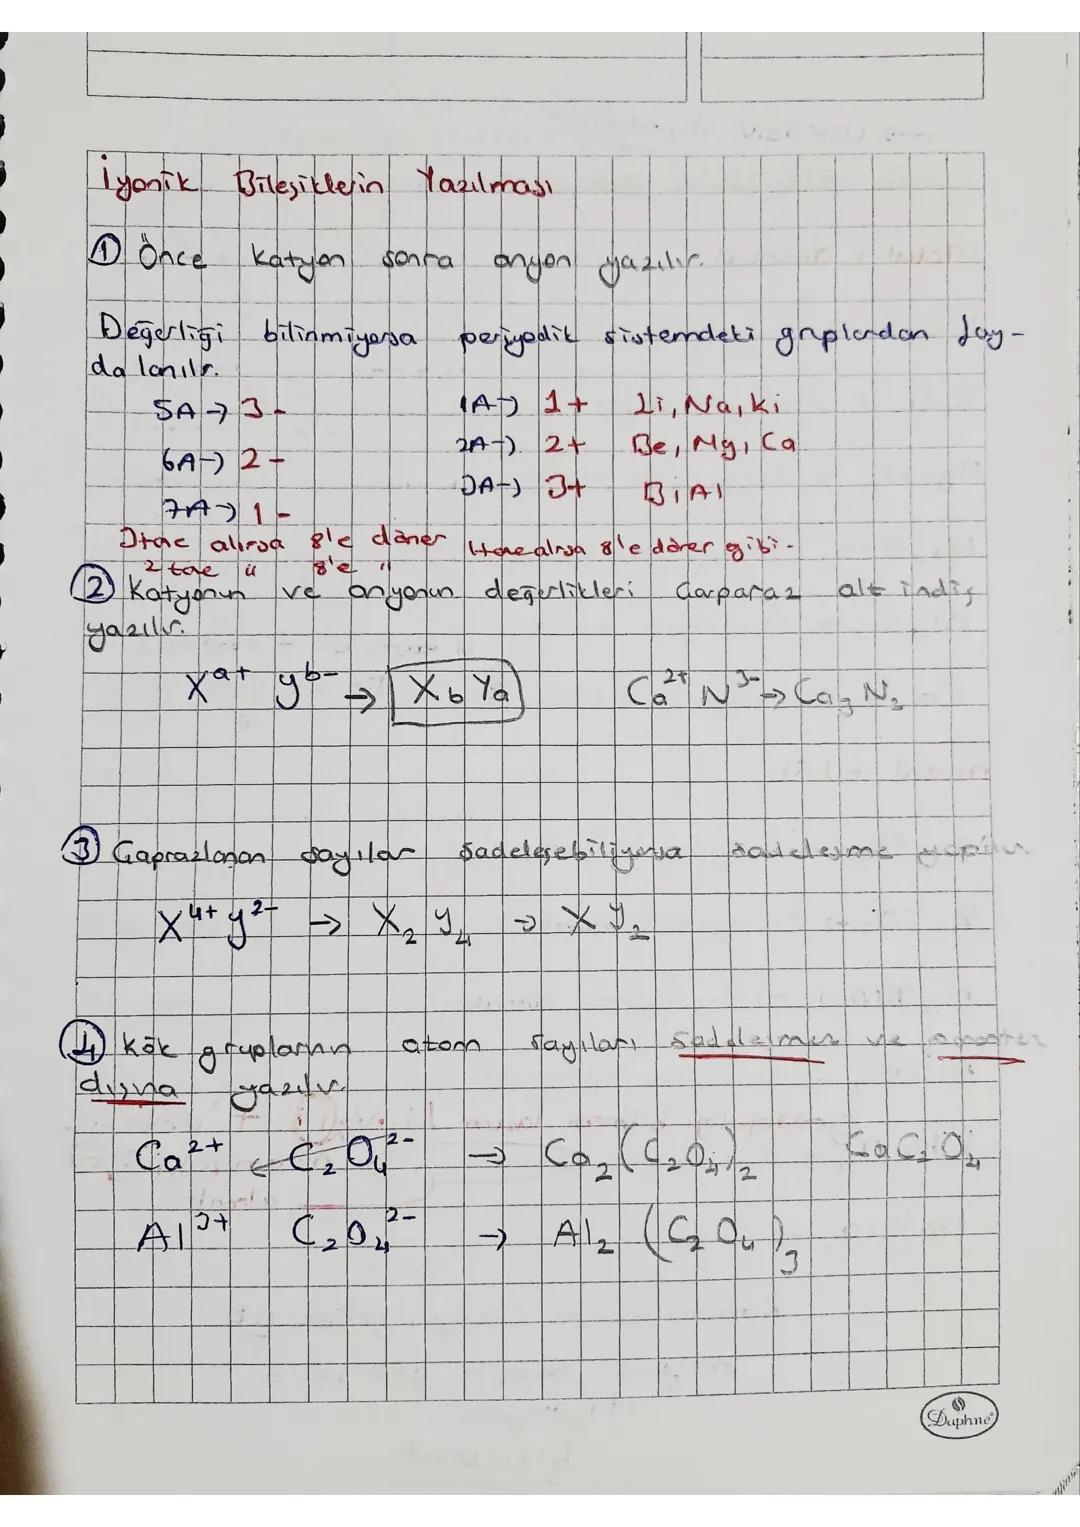 İyonik Bileşiklerin Yazılması
① Önce katyon sonra anyon yazılır.
Değerliği bilinmiyorsa periyodik sistemdeki gruplardan fay-
dalanılır.
5A → 3- 1A → 1+ Li, Na, Ki
6A → 2- 2A → 2+ Be, Mg, Ca
7A → 1- 3A → 3+ B, Al
3 tane alırsa 8'e döner 1 tane alırsa 8'e döner gibi.
2 tane " 8'e "
② Katyonun ve anyonun değerlikleri çarpraz alt indis
yazılır.
X^a+ y^b- → X_b Y_a Ca^2+ N^3- → Ca_3 N_2
③ Çaprazlanan sayılar sadeleşebiliyorsa sadeleşme yapılır.
X^4+ y^2- → X_2 y_4 → X y_2
④ Kök grupların atom sayıları sadeleşmez ve parantez
dışına yazılır.
Ca^2+ ← C_2O_4^2- → Ca_2(C_2O_4)_2 CaC_2O_4
Al^3+ C_2O_4^2- → Al_2 (C_2O_4)_3
Daphne